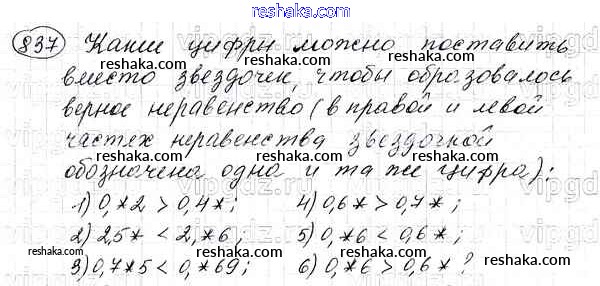 reshaka.com
837 Какие цифры можно поставить
reshaka.com
вместо звездочек, чтобы образовалось
верное неравенство (в правой и левой
reshaka.com
частях неравенства звездочкой
reshaka.com reshaka.com
обозначена одна и та же цифра):
1) 0,*2 > 0,4*; 4) 0,6* > 0,7*;
reshaka.com reshaka.com
2) 2,5* < 2,*6; 5) 0,*6 < 0,6*;
reshaka.com reshaka.com
3) 0,7*5 < 0,*69; 6) 0,*6 > 0,6*?
reshaka.com